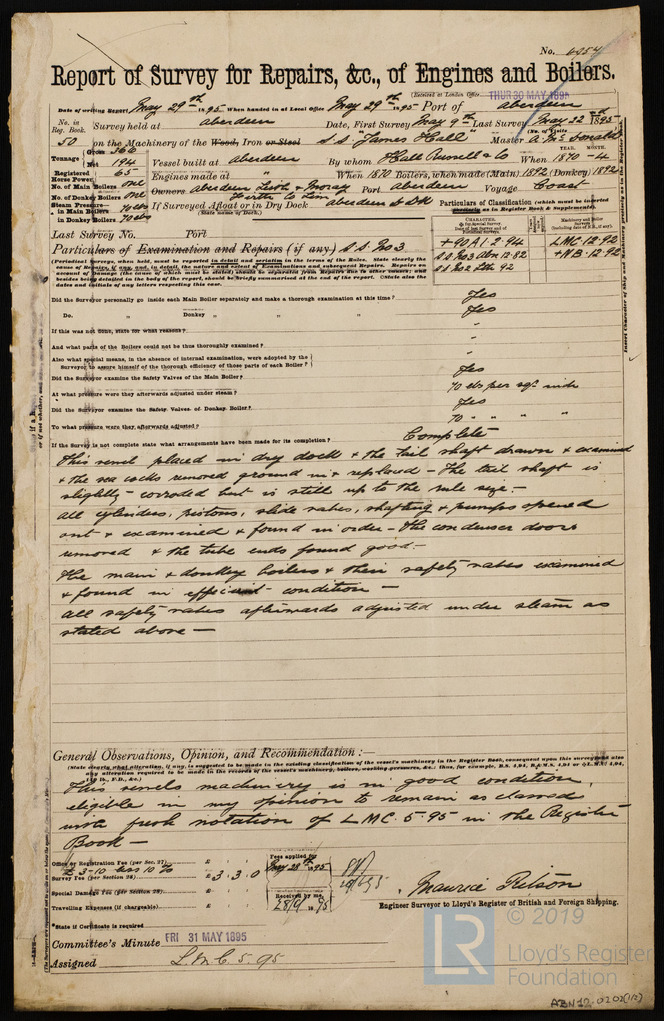 No. 6254
Report of Survey for Repairs, &c., of Engines and Boilers.
(Received at London Office THUR 30 MAY 1895
Date of writing Report May 29th 1895 When handed in at Local Office May 29th 1895 Port of Aberdeen
No. in Reg. Book. Survey held at Aberdeen Date, First Survey May 9th Last Survey May 22 1895
(No. of Visits
50 on the Machinery of the Wood, Iron or Steel S.S. "James Hall" Master
YEAR. MONTH.
Tonnage Gross 366
Net 194 Vessel built at Aberdeen By whom Hall Russell & Co When 1870-4
Registered Horse Power 65 Engines made at " When 1870 Boilers, when made (Main) 1892 (Donkey) 1892
No. of Main Boilers one Owners Aberdeen Leith & Moray Firth Co Port Aberdeen Voyage Coast
No. of Donkey Boilers one
Steam Pressure—
in Main Boilers 70 lbs If Surveyed Afloat or in Dry Dock Aberdeen D Dk
in Donkey Boilers 70 lbs (State name of Dock.)
Particulars of Classification (which must be inserted
Last Survey No. Port
Particulars of Examination and Repairs (if any) S.S. No 3
+ 90 A 1 2.94 LMC 12.92
S.S. No 3 Abn 12.82 + NB 12.92
S.S. No 2 Lth 92
Did the Surveyor personally go inside each Main Boiler separately and make a thorough examination at this time? Yes
Do. " Donkey " " " Yes
If this was not done, state for what reasons? "
And what parts of the Boilers could not be thoroughly examined? "
Also what special means, in the absence of internal examination, were adopted by the
Surveyor, to assure himself of the thorough efficiency of those parts of each Boiler? "
Did the Surveyor examine the Safety Valves of the Main Boiler? Yes
At what pressure were they afterwards adjusted under steam? 70 lbs per sq. inch
Did the Surveyor examine the Safety Valves of Donkey Boiler? Yes
To what pressure were they afterwards adjusted? 70 " " " "
If the Survey is not complete state what arrangements have been made for its completion? Complete
This vessel placed in dry dock & the tail shaft drawn & examined
& the sea cocks removed ground in & replaced – The tail shaft is
slightly corroded but is still up to the rule size.–
All cylinders, pistons, slide valves, shafting & pumps opened
out & examined & found in order – The condenser doors
removed & the tube ends found good.–
The main & donkey boilers & their safety valves examined
& found in efficient condition –
All safety valves afterwards adjusted under steam as
stated above –
General Observations, Opinion, and Recommendation :—
(State clearly what alteration, if any, is suggested to be made in the existing classification of the vessel's machinery in the Register Book, consequent upon this survey and also
any alteration required to be made in the records of the vessel's machinery, boilers, working pressures, &c.: thus, for example, B.S. 4,94, B.&M.S. 4,94 or L.M.C. 4,94,
This vessels machinery is in good condition,
eligible in my opinion to remain as classed
with fresh notation of LMC. 5.95 in the Register
Book –
Office or Registration Fee (per Sec. 27)
£3-10 less 10%
Survey Fee (per Section 28) £ 3.3.0
Special Damage Fee (per Section 28) £
Travelling Expenses (if chargeable) £
Fees applied for
May 28th 1895
Received by me,
1895
Maurice Pelson
Engineer Surveyor to Lloyd's Register of British and Foreign Shipping.
*State if Certificate is required
Committee's Minute FRI 31 MAY 1895
Assigned L.M.C. 5.95
© 2019
LR
Lloyd's Register
Foundation
ABN12-0202(1R)